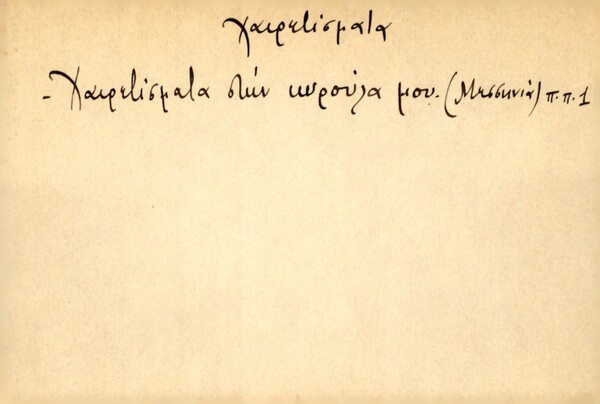 χαιρετίσματα
- Χαιρετίσματα στήν κυρούλα μου. (Μεσσηνιά) π.π. 1